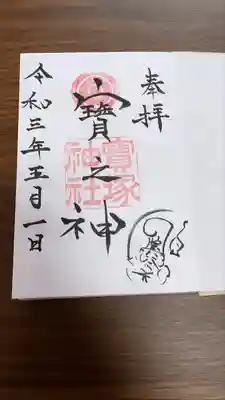 奉拝
寳之神
寳塚
神社
令和三年五月一日